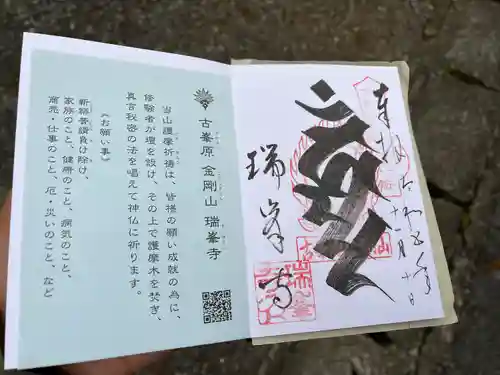 奉拝 令和五年
十一月十日
瑞峯寺
古峯原 金剛山 瑞峯寺
当山護摩祈祷は、皆様の願い成就の為に、
修験者が壇を設け、その上で護摩木を焚き、
真言秘密の法を唱えて神仏に祈ります。
《お願い事》
新築普請負け除け、
家族のこと、健康のこと、病気のこと、
商売・仕事のこと、厄・災いのこと、など